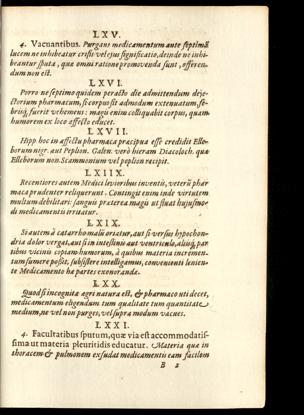 LXV.
4. Vacuantibus. Purgans medicamentum ante septimã
lucem ne inhibeatur crisis vel ejus significatio, deinde ne inhi-
beantur sputa, qua omni ratione promovenda sunt, offeren-
dum non est.
LXVI.
Porro ne septimo quidem peracto die admittendum deje-
ctorium pharmacum, si corpus sit admodum extenuatum, fe-
brisq; fuerit vehemens: magis enim colliquabit corpus, quam
humorem ex loco affecto educet.
LXVII.
Hipp. hoc in affectu pharmaca præcipua esse credidit Elle-
borum nigr. aut Peplion. Galen. verò hieram Diacoloch. qua
Elleborum non Scammonium vel peplion recipit.
LXIIX.
Recentiores autem Medici levioribus inventis, veterũ phar-
maca prudenter reliquerunt. Contingit enim inde virtutem
multum debilitari: sanguis praterea magis ut fluat hujusmo-
di medicamentis irritatur.
LXIX.
Si autem à catarrho malũ oriatur, aut si versus hypochon-
dria dolor vergat, aut si in intestinis aut ventriculo, aliisq; par-
tibus vicinis copiam humorum, à quibus materia incremen-
tum sumere possit, subsistere intelligamus, convenienti lenien-
te Medicamento ha partes exonerandæ.
LXX.
Quod si incognita ægri natura est, & pharmaco uti decet,
medicamentum eligendum tam qualitate tum quantitate
medium, ne vel non purges, vel supra modum vacues.
LXXI.
4. Facultatibus sputum, quæ via est accommodatis-
sima ut materia pleuritidis educatur. Materia qua in
thoracem & pulmonem exsudat medicamentis eam facilem
B 2